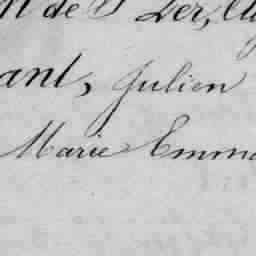 de S Ler,
ant, Julien
Marie Emma